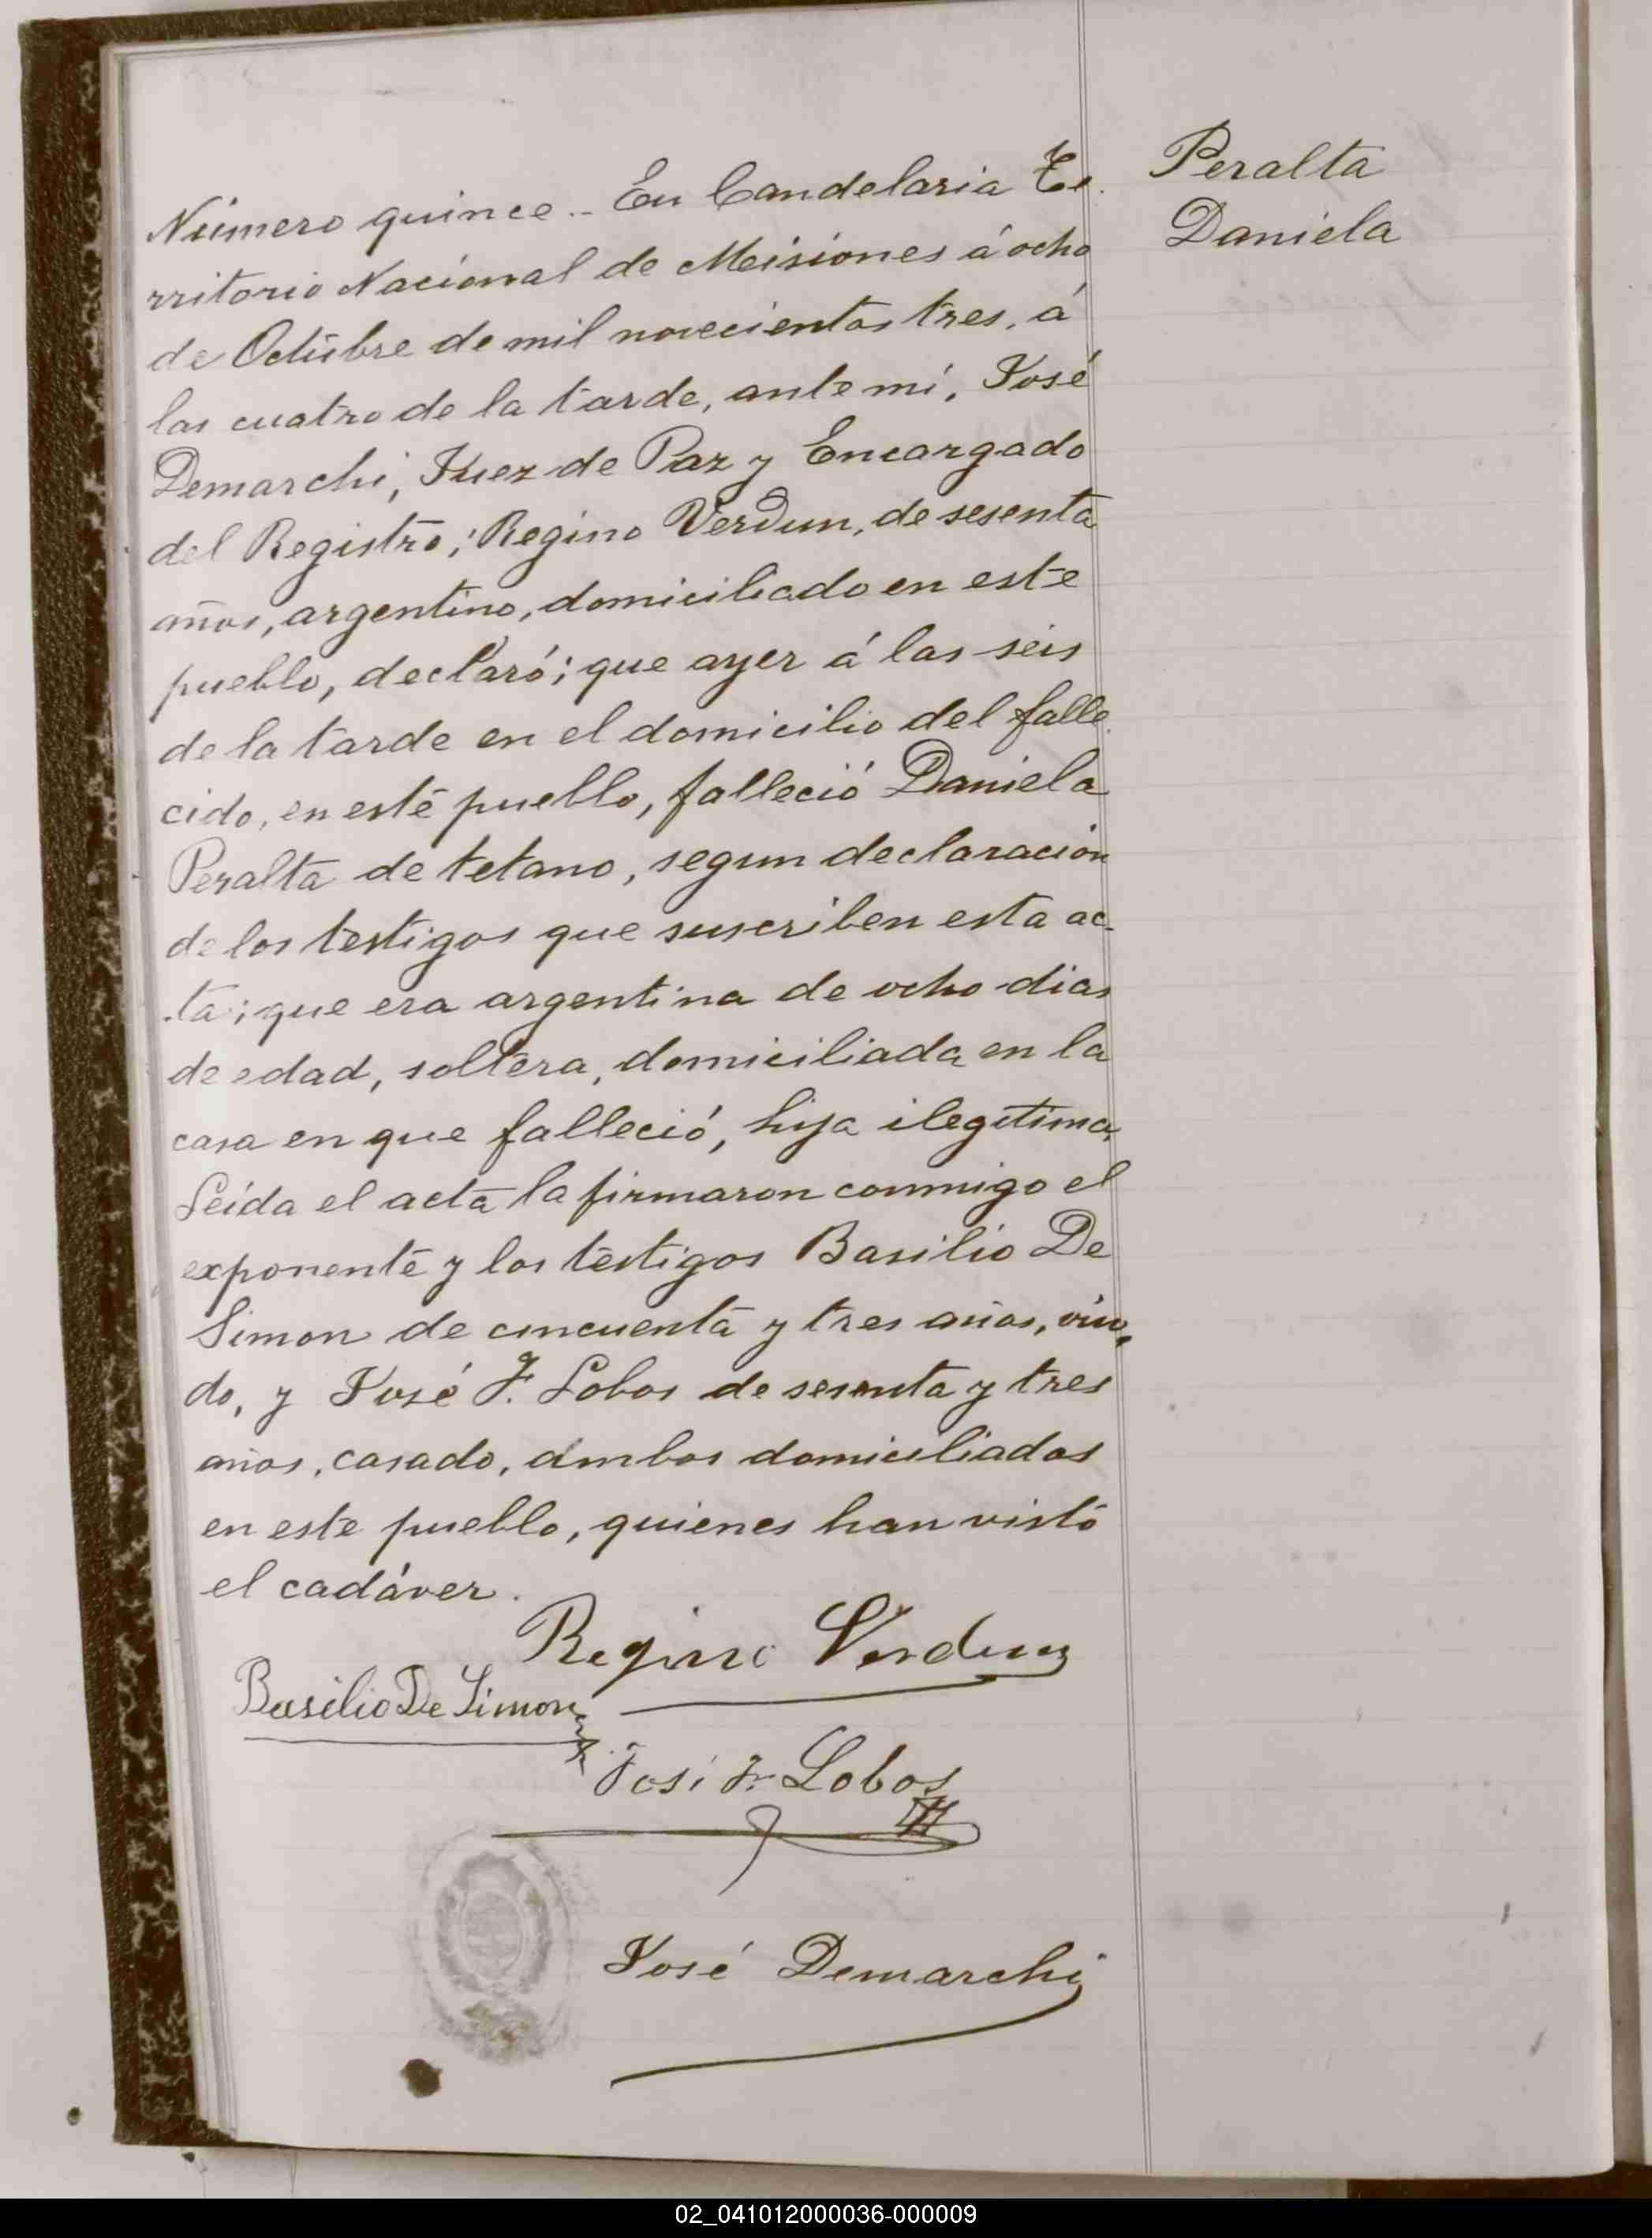 Número quince.. En Candelaria Te.
rritorio Nacional de Misiones á ocho
de Octubre de mil novecientos tres, á
las cuatro de la tarde, ante mí, José
Demarchi, Juez de Paz y Encargado
del Registro; Regino Verdun, de sesenta
años, argentino, domiciliado en este
pueblo, declaró; que ayer á las seis
de la tarde en el domicilio del falle.
cido, en este pueblo, falleció Daniela
Peralta de tetano, segun declaración
de los testigos que suscriben esta ac-
ta; que era argentina de ocho dias
de edad, soltera, domiciliada en la
casa en que falleció, hija ilegitima.
Leída el acta la firmaron conmigo el
exponente y los testigos Basilio De
Simon de cincuenta y tres años, viu.
do, y José F. Lobos de sesenta y tres
años, casado, ámbos domiciliados
en este pueblo, quienes han visto
el cadáver.
Peralta
Daniela
Regino Verdun
Basilio De Simon
José F. Lobos
José Demarchi
02_041012000036-000009